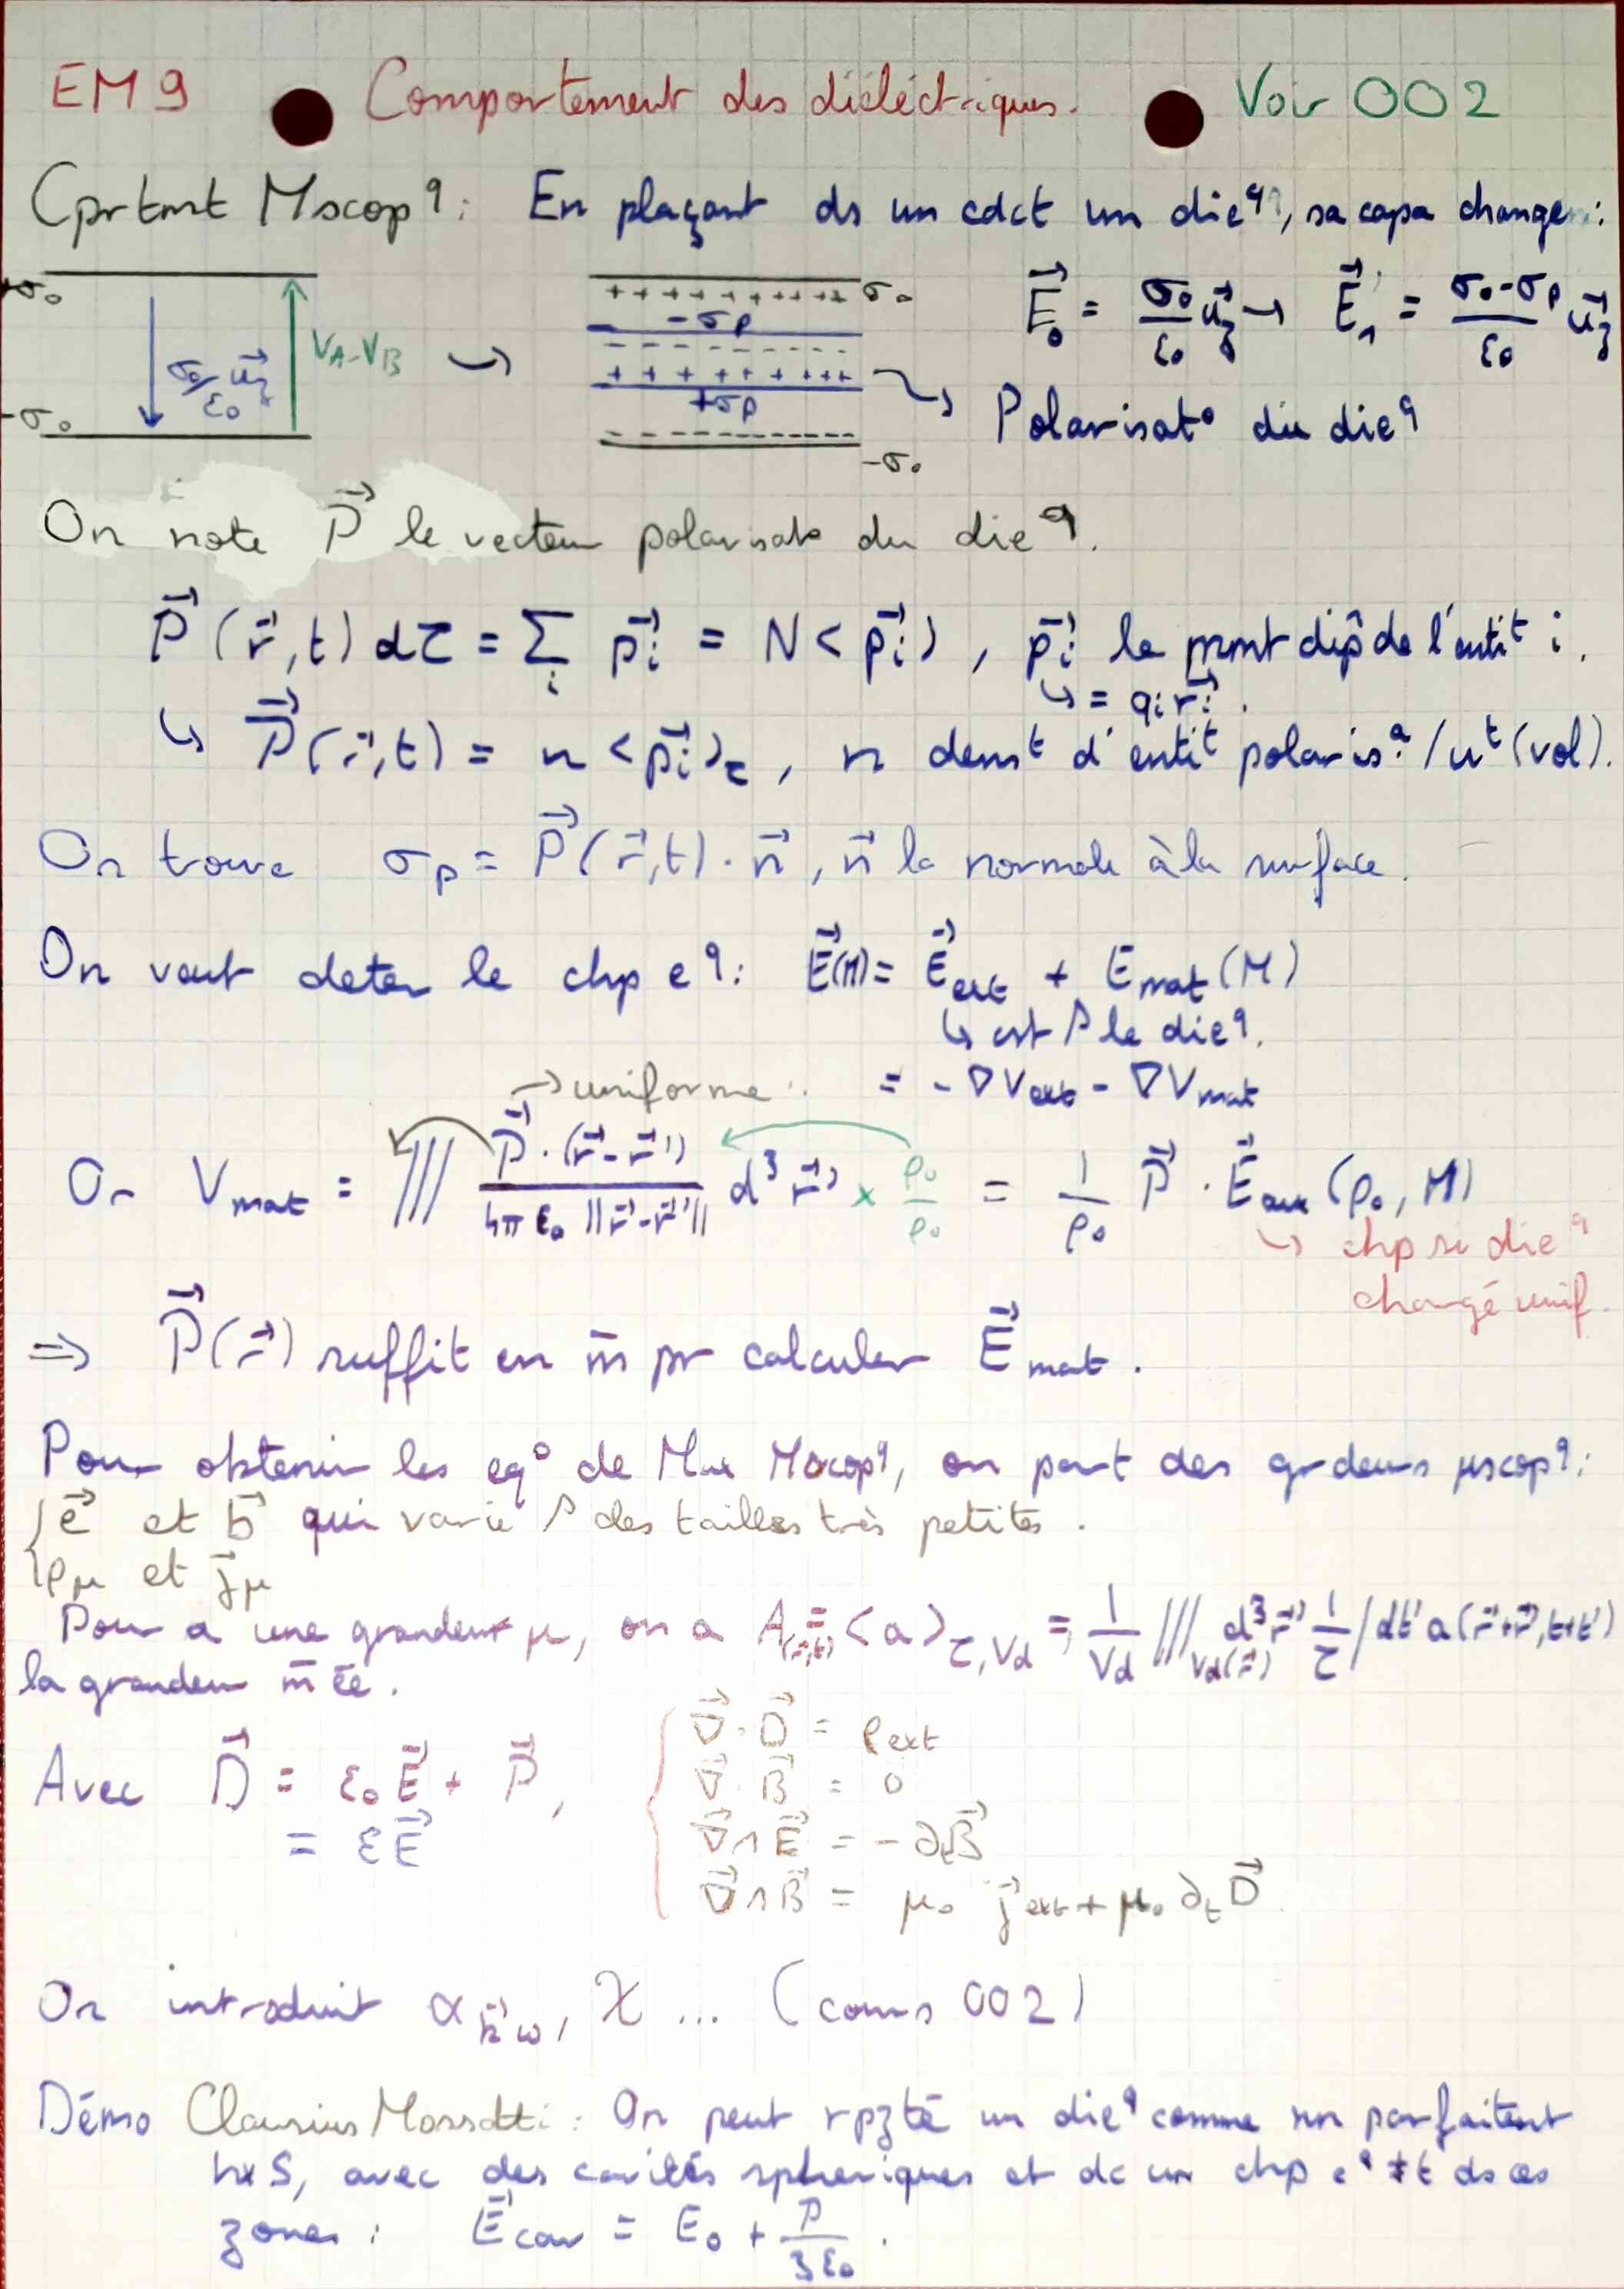 EM9 Comportement des diéléctriques. Voir 002
Cprtmt Mscop^q : En plaçant ds un cdct un die^q, sa capa change :
+σ₀ -σ₀ σ₀/ε₀ u⃗z V_A-V_B ↝
+ + + + + + + + + + σ₀
-σp
- - - - - - - -
+ + + + + + + + +
+σp
- - - - - - - - - - -σ₀
E⃗₀ = σ₀/ε₀ u⃗z → E⃗₁ = (σ₀-σp)/ε₀ u⃗z
↝ Polarisat° du die^q
On note P⃗ le vecteur polarisat° du die^q.
P⃗(r⃗,t) dτ = Σ_i p⃗i = N<p⃗i>, p⃗i le mmt dip̂ de l'entit^t i.
↳ = qi r⃗i.
↳ P⃗(r⃗,t) = n <p⃗i>_τ, n denst d'entit^t polaris^a /u^t (vol).
On trouve σp = P⃗(r⃗,t) . n⃗, n⃗ la normale à la surface.
On veut deter le chp e^q : E⃗(M) = E⃗ext + Emat(M)
↳ est s le die^q.
→ uniforme = - ∇Vext - ∇Vmat
Or Vmat = ∭ P⃗.(r⃗-r⃗')/(4πε₀ ||r⃗-r⃗'||) d³r⃗' × ρ₀/ρ₀ = 1/ρ₀ P⃗ . E⃗aux(ρ₀, M)
↳ chp si die^q
chargé unif.
⇒ P⃗(r⃗) suffit en m̄ pr calculer E⃗mat.
Pour obtenir les eq° de Max Mscop^q, on part des grdeurs μscop^q :
{ e⃗ et b⃗ qui varie s des tailles très petites.
ρμ et j⃗μ
Pour a une grandeur μ, on a A(r⃗,t) = <a>_τ,Vd = 1/Vd ∭_Vd(r⃗) d³r⃗' 1/τ ∫dt' a(r⃗+r⃗', t+t')
la grandeur m̄ ée.
Avec D⃗ = ε₀E⃗ + P⃗,
= εE⃗
{ ∇⃗.D⃗ = ρext
∇⃗.B⃗ = 0
∇⃗∧E⃗ = - ∂tB⃗
∇⃗∧B⃗ = μ₀ j⃗ext + μ₀ ∂tD⃗
On introduit α_k⃗ω, χ ... (cours 002)
Démo Clausius Mossotti : On peut rpzté un die^q comme un parfaitemt
hx S, avec des cavités spheriques et dc un chp e^q ≠t ds ces
zones : E⃗cav = E₀ + P/3ε₀.